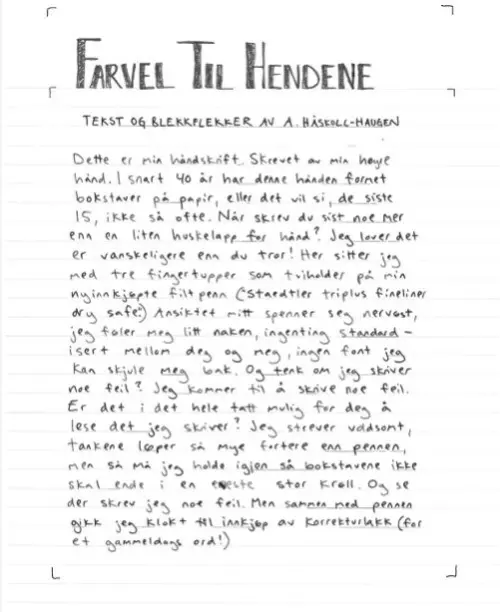 FARVEL TIL HENDENE
TEKST OG BLEKKFLEKKER AV A. HÅSKOLL-HAUGEN
Dette er min håndskrift. Skrevet av min høyre
hånd. I snart 40 år har denne hånden formet
bokstaver på papir, eller det vil si, de siste
15, ikke så ofte. Når skrev du sist noe mer
enn en liten huskelapp for hånd? Jeg lover det
er vanskeligere enn du tror! Her sitter jeg
med tre fingertupper som tviholder på min
nyinnkjøpte filtpenn (Staedtler triplus fineliner
dry safe.) Ansiktet mitt spenner seg nervøst,
jeg føler meg litt naken, ingenting standard-
isert mellom deg og meg, ingen font jeg
kan skjule meg bak. Og tenk om jeg skriver
noe feil? Jeg kommer til å skrive noe feil.
Er det i det hele tatt mulig for deg å
lese det jeg skriver? Jeg strever voldsomt,
tankene løper så mye fortere enn pennen,
men så må jeg holde igjen så bokstavene ikke
skal ende i en eneste stor krøll. Og se
der skrev jeg noe feil. Men sammen med pennen
gikk jeg klokt til innkjøp av korrekturlakk (for
et gammeldags ord!)